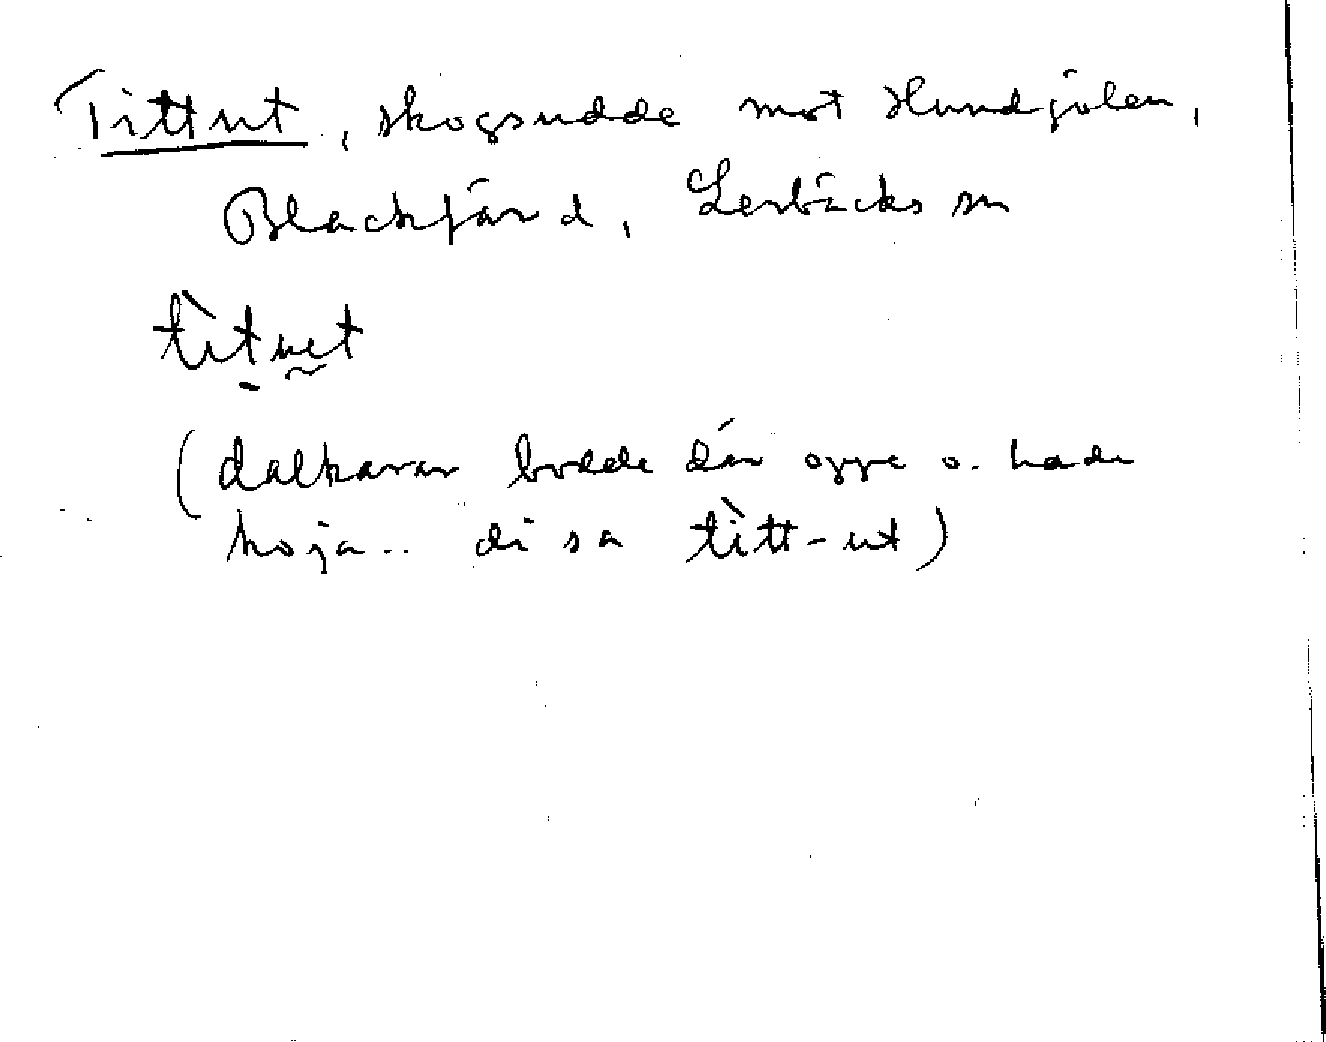 Tittut, skogsudde mot Hundgölen,
Blackfärd, Lerbäcks sn
tìtut
(dalkarar bodde där oppe o. hade
koja.. di sa tìtt-ut)